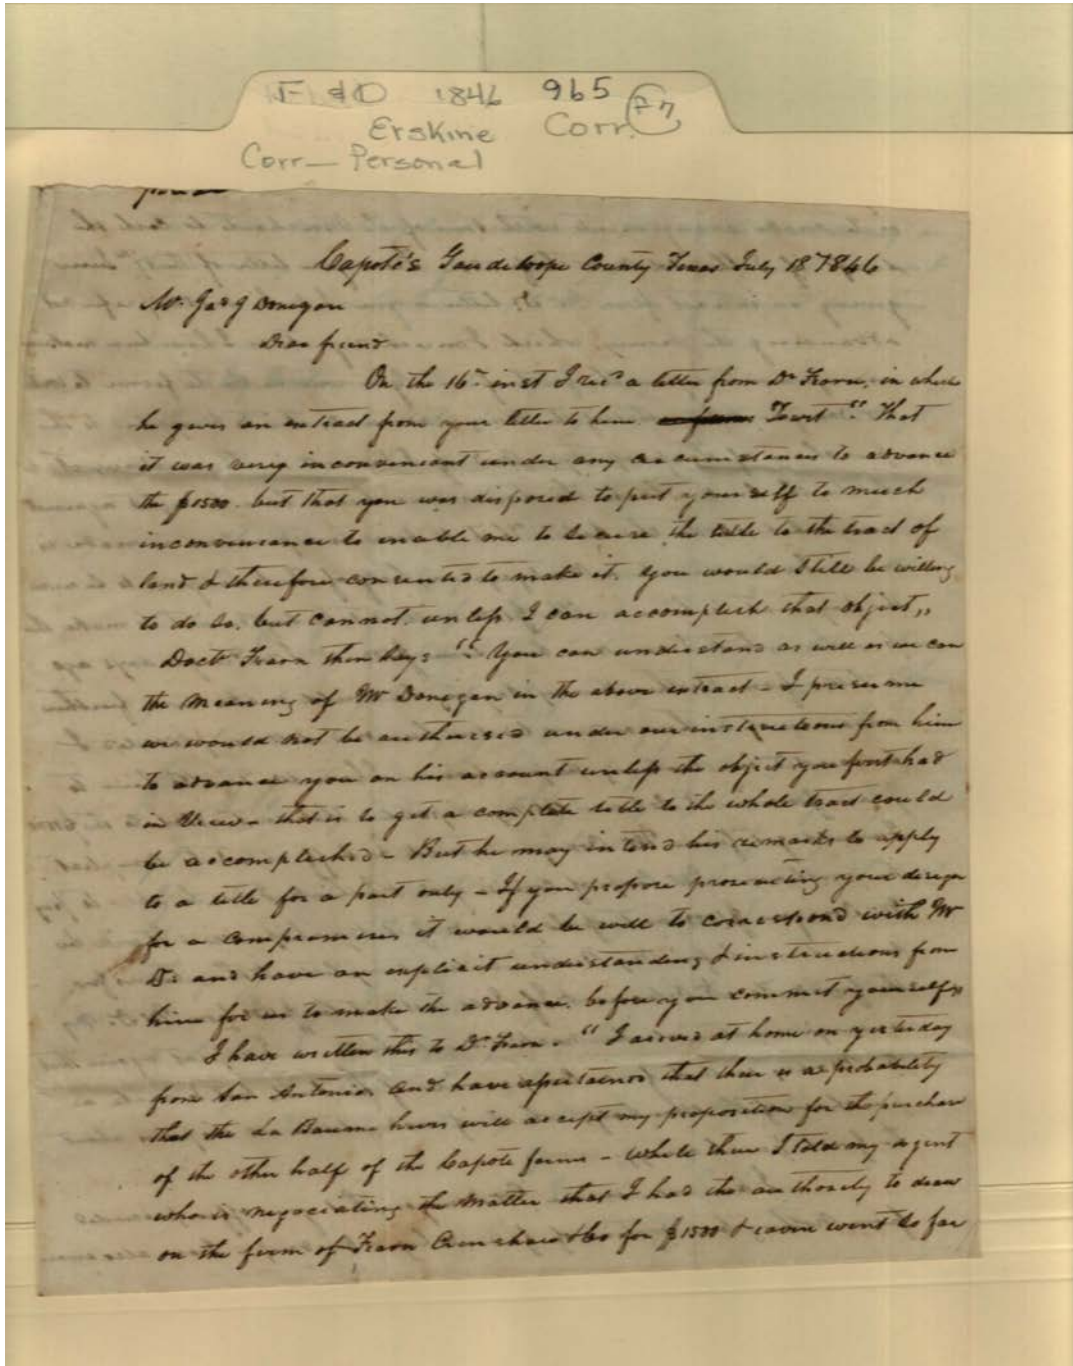 F & D 1846 965
Erskine Corr. F 7
Corr— Personal
Capote's Gaudeloope County Texas July 18 1846
Mr. Jas J Donegan
Dear friend
On the 16th inst I recd a letter from Dr Fearn, in which
he gives an extract from your letter to him Towit " That
it was verry inconvenient under any circumstances to advance
the $1500. but that you was disposed to put yourself to much
inconveniance to enable me to secure the title to the tract of
land & therefore consented to make it. you would still be willing
to do so, but cannot, unless I can accomplish that object,,
Doctr Fearn then says " you can understand as well as we can
the meaning of Mr Donegan in the above extract – I presume
we would not be authorised under our instructions from him
to advance you on his account unless the object you first had
in View – that is to get a complete title to the whole tract could
be accomplished – But he may intend his remarks to apply
to a title for a part only – If you propose prosecuting your design
for a compromise it would be well to correspond with Mr
D. and have an explicit understanding & instructions from
him for us to make the advance. before you commit yourself,,
I have written this to Dr Fearn. " I arived at home on yesterday
from San Antonio and have assertained that there is a probability
that the La Baume heirs will accept my proposition for the purchase
of the other half of the Capote farm – while there I told my agent
who is negociating the matter that I had the authority to draw
on the firm of Fearn Crenshaw & Co for $1500 & even went so far